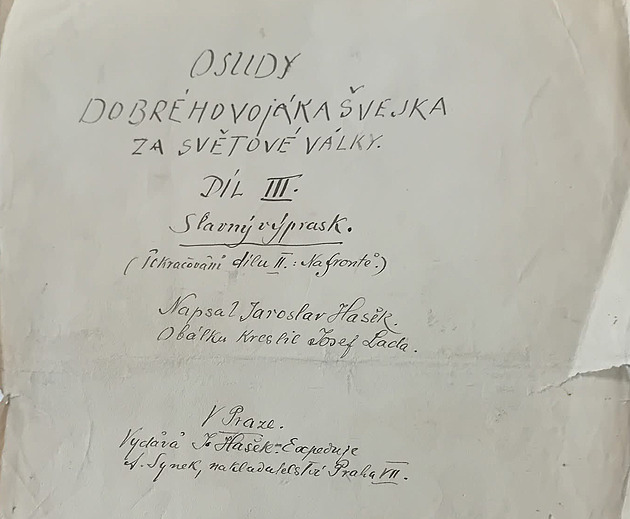 OSUDY
DOBRÉHO VOJÁKA ŠVEJKA
ZA SVĚTOVÉ VÁLKY.
DÍL III.
Slavný výprask.
(Pokračování dílu II.: Na frontě.)
Napsal Jaroslav Hašek.
Obálku kreslil Josef Lada.
V Praze.
Vydává J. Hašek – Expeduje
A. Synek, nakladatelství Praha VII.